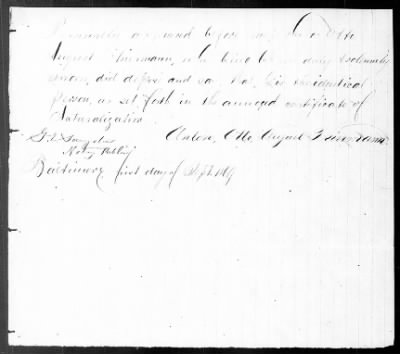 Personally appeared before me, Anton Otto
August Thiemann, who being by me duly & solemnly
sworn, did depose and say that he is the identical
person, as set forth in the annexed certificate of
Naturalization.
Anton, Otto, August
Notry Public
Baltimore first day of Sept.